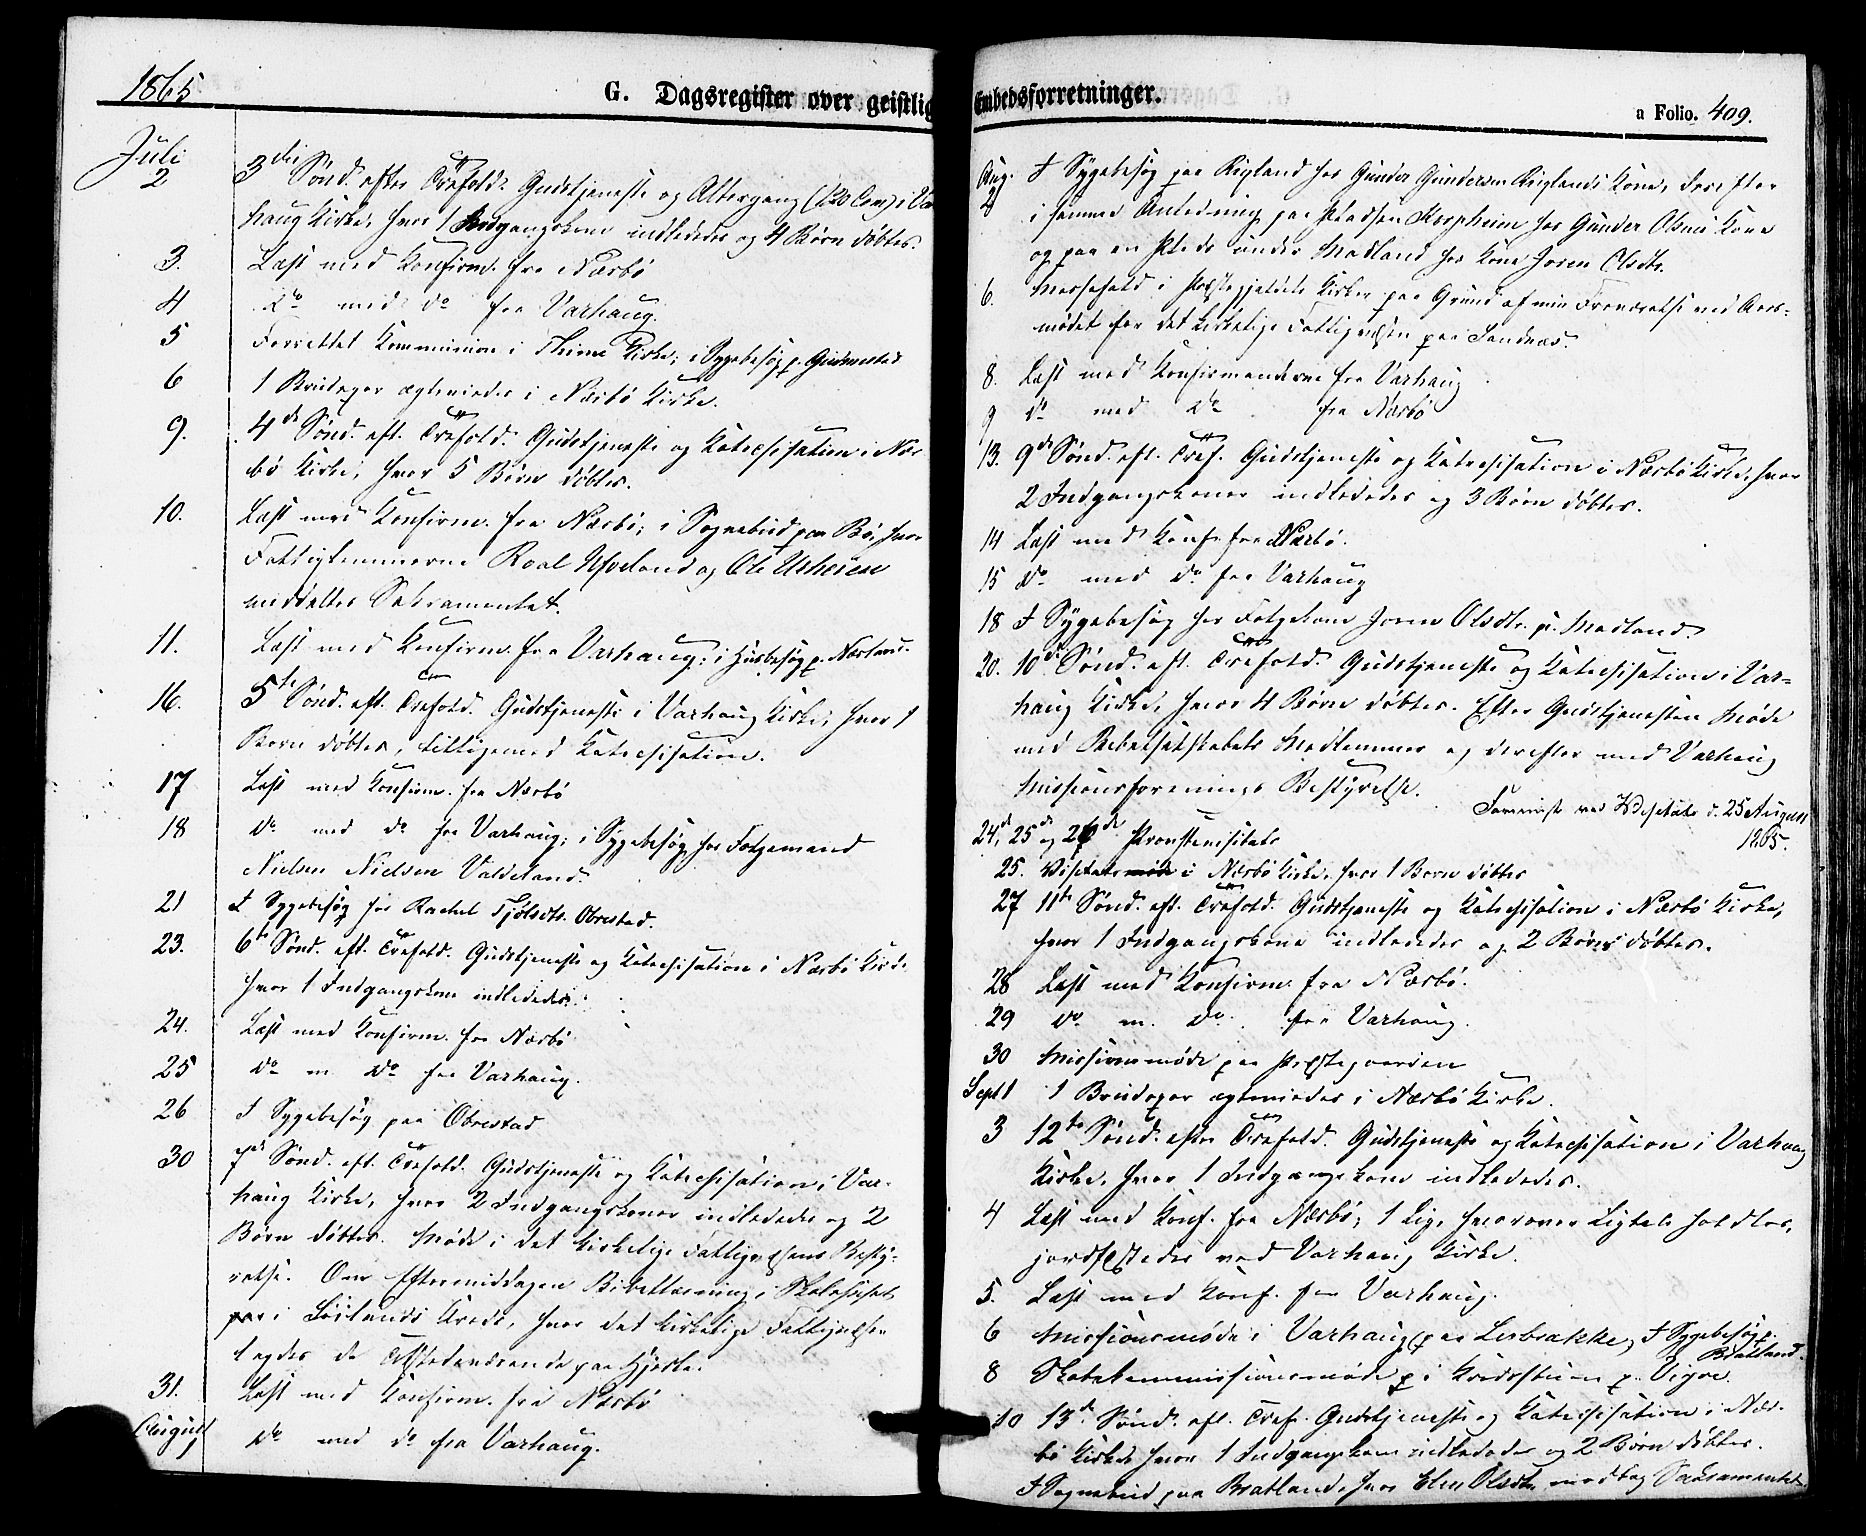 1865
G. Dagsregister over geistlig
Juli
2 3die Sønd. efter Trefold. Gudstjeneste og Altergang (120 Com) i Var
haug Kirke, hvor 1 Indgangskone indlededes og 4 Børn døbtes.
3. Læst med Konfirm. fra Nærbø
4 do med do fra Varhaug.
5 Forrettet Kommunion i Thime Kirke; i Sygebesøg p.
6 1 Brudepar ægteviedes i Nærbø Kirke.
9. 4de Sønd. eft. Trefold. Gudstjeneste og Katechisation i Nær
bø Kirke, hvor 5 Børn døbtes.
10. Læst med Konfirm. fra Nærbø; i Sognebud paa Bø, hvor
Fattiglemmerne Roal Ueland og Ole Urheien
meddeltes Sakramentet.
11. Læst med Konfirm. fra Varhaug; i Husbesøg p.
16. 5te Sønd. eft. Trefold. Gudstjeneste i Varhaug Kirke, hvor 1
Barn døbtes, tilligemed Katechisation.
17 Læst med Konfirm. fra Nærbø
18 do med do fra Varhaug; i Sygebesøg hos Folgemand
Nielsen Nielsen Valdeland.
21 I Sygebesøg hos Rachel Tjølsdtr. Obrestad.
23. 6te Sønd. eft. Trefold. Gudstjeneste og Katechisation i Nærbø Kirke
hvor 1 Indgangskone indlededes.
24. Læst med Konfirm. fra Nærbø
25 do m do fra Varhaug.
26 I Sygebesøg paa Obrestad
30 7de Sønd. eft. Trefold. Gudstjeneste og Katechisation i Var-
haug Kirke, hvor 2 Indgangskoner indlededes og 2
Børn døbtes. Møde i det kirkelige Fattigvæsens Besty-
relse. Om Eftermiddagen Bibellæsning i Skolehuset
i Kreds, hvor det kirkelige Fattigvæsen
lagdes de Tilstedeværende paa Hjerte.
31. Læst med Konfirm. fra Nærbø
August
1 do med do fra Varhaug.
Embedsforretninger.
a Folio. 409.
Aug.
2 I Sygebesøg paa Rigland hos Gunder Gundersen Riglands Kone, derefter
i samme Anledning paa Pladsen hos Gunder Olsens Kone
og paa en Plads under Madland hos Kone Joren Olsdtr.
6. Messefald i Præstegjeldets Kirker paa Grund af min Fraværelse ved Aars-
mødet for det kirkelige Fattigvæsen paa Sandnæs.
8. Læst med Konfirmanderne fra Varhaug
9 do med do fra Nærbø
13. 9de Sønd. eft. Tref. Gudstjeneste og Katechisation i Nærbø Kirke, hvor
2 Indgangskoner indlededes og 3 Børn døbtes.
14 Læst med Konf. fra Nærbø.
15 do med do fra Varhaug
18 I Sygebesøg hos Folgekone Joren Olsdtr. p. Madland.
20. 10de Sønd. eft. Trefold. Gudstjeneste og Katechisation i Var-
haug Kirke, hvor 4 Børn døbtes. Efter Gudstjenesten Møde
med Bibelselskabets Medlemmer og derefter med Varhaug
Missionsforenings Bestyrelse.
Foreviist ved Visitats d. 25 August
1865.
24de, 25de og 26de Provstevisitats
25. Visitats i Nærbø Kirke, hvor 1 Barn døbtes
27 11te Sønd. eft. Trefold. Gudstjeneste og Katechisation i Nærbø Kirke,
hvor 1 Indgangskone indlededes og 2 Børn døbtes.
28 Læst med Konfirm. fra Nærbø.
29 do m. do fra Varhaug.
30 Missionsmøde paa Præstegaarden
Sept 1 1 Brudepar ægteviedes i Nærbø Kirke.
3 12te Sønd. efter Trefold. Gudstjeneste og Katechisation i Varhaug
Kirke, hvor 1 Indgangskone indlededes.
4 Læst med Konf. fra Nærbø; 1 Lig, hvorover Ligtale holdtes,
jordfæstedes ved Varhaug Kirke.
5. Læst med Konf. fra Varhaug.
6 Missionsmøde i Varhaug paa Lerbrække, I Sygebesøg p.
Bratland.
8 Skolekommissionsmøde i Kredsstuen p. Vigre.
10 13de Sønd. eft. Tref. Gudstjeneste og Katechisation i Nær-
bø Kirke hvor 1 Indgangskone indlededes og 2 Børn døbtes.
I Sognebud paa Bratland, hvor Elen Olsdtr. modtog Sakramentet